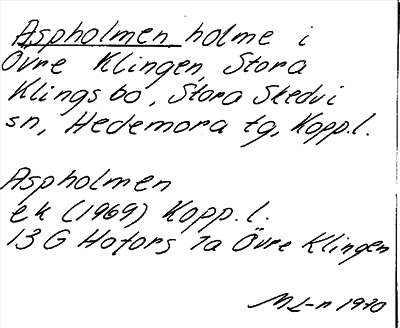 Aspholmen holme i
Övre Klingen, Stora
Klingsbo, Stora Skedvi
sn, Hedemora tg, Kopp.l.
Aspholmen
ek (1969) Kopp.l.
13 G Hofors 7a Övre Klingen
ML-n 1970